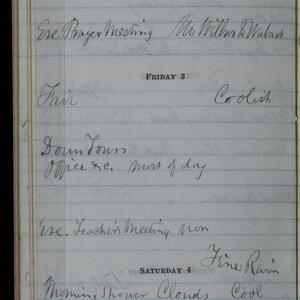 Eve Prayer Meeting Mr Wilbur D Wabash
FRIDAY 3
Fair Coolish
Down Town
Office &c. most of day
Eve. Teacher's Meeting
Fine Rain
SATURDAY 4
Morning Shower Cloudy Cool